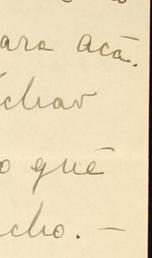 ara acā.
char
o quē
cho. —